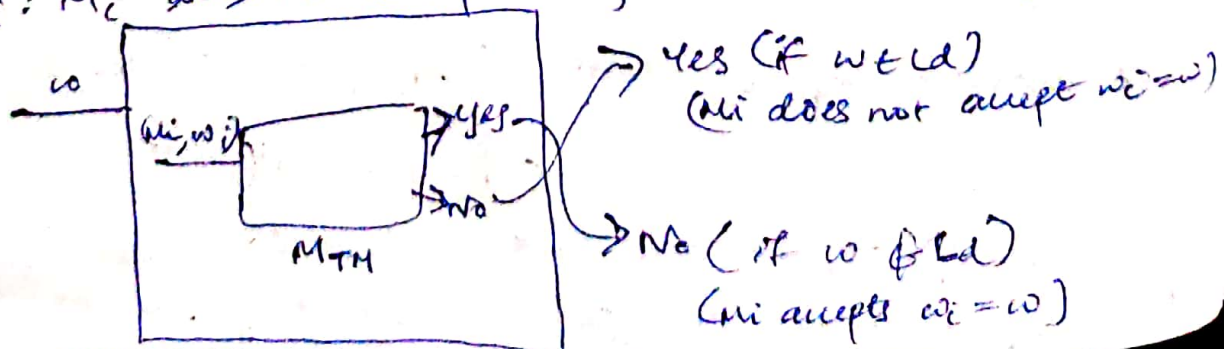 w
(Mi, wi)
Yes
No
MTM
Yes (if w ∈ Ld)
(Mi does not accept wi = w)
No (if w ∉ Ld)
(Mi accepts wi = w)